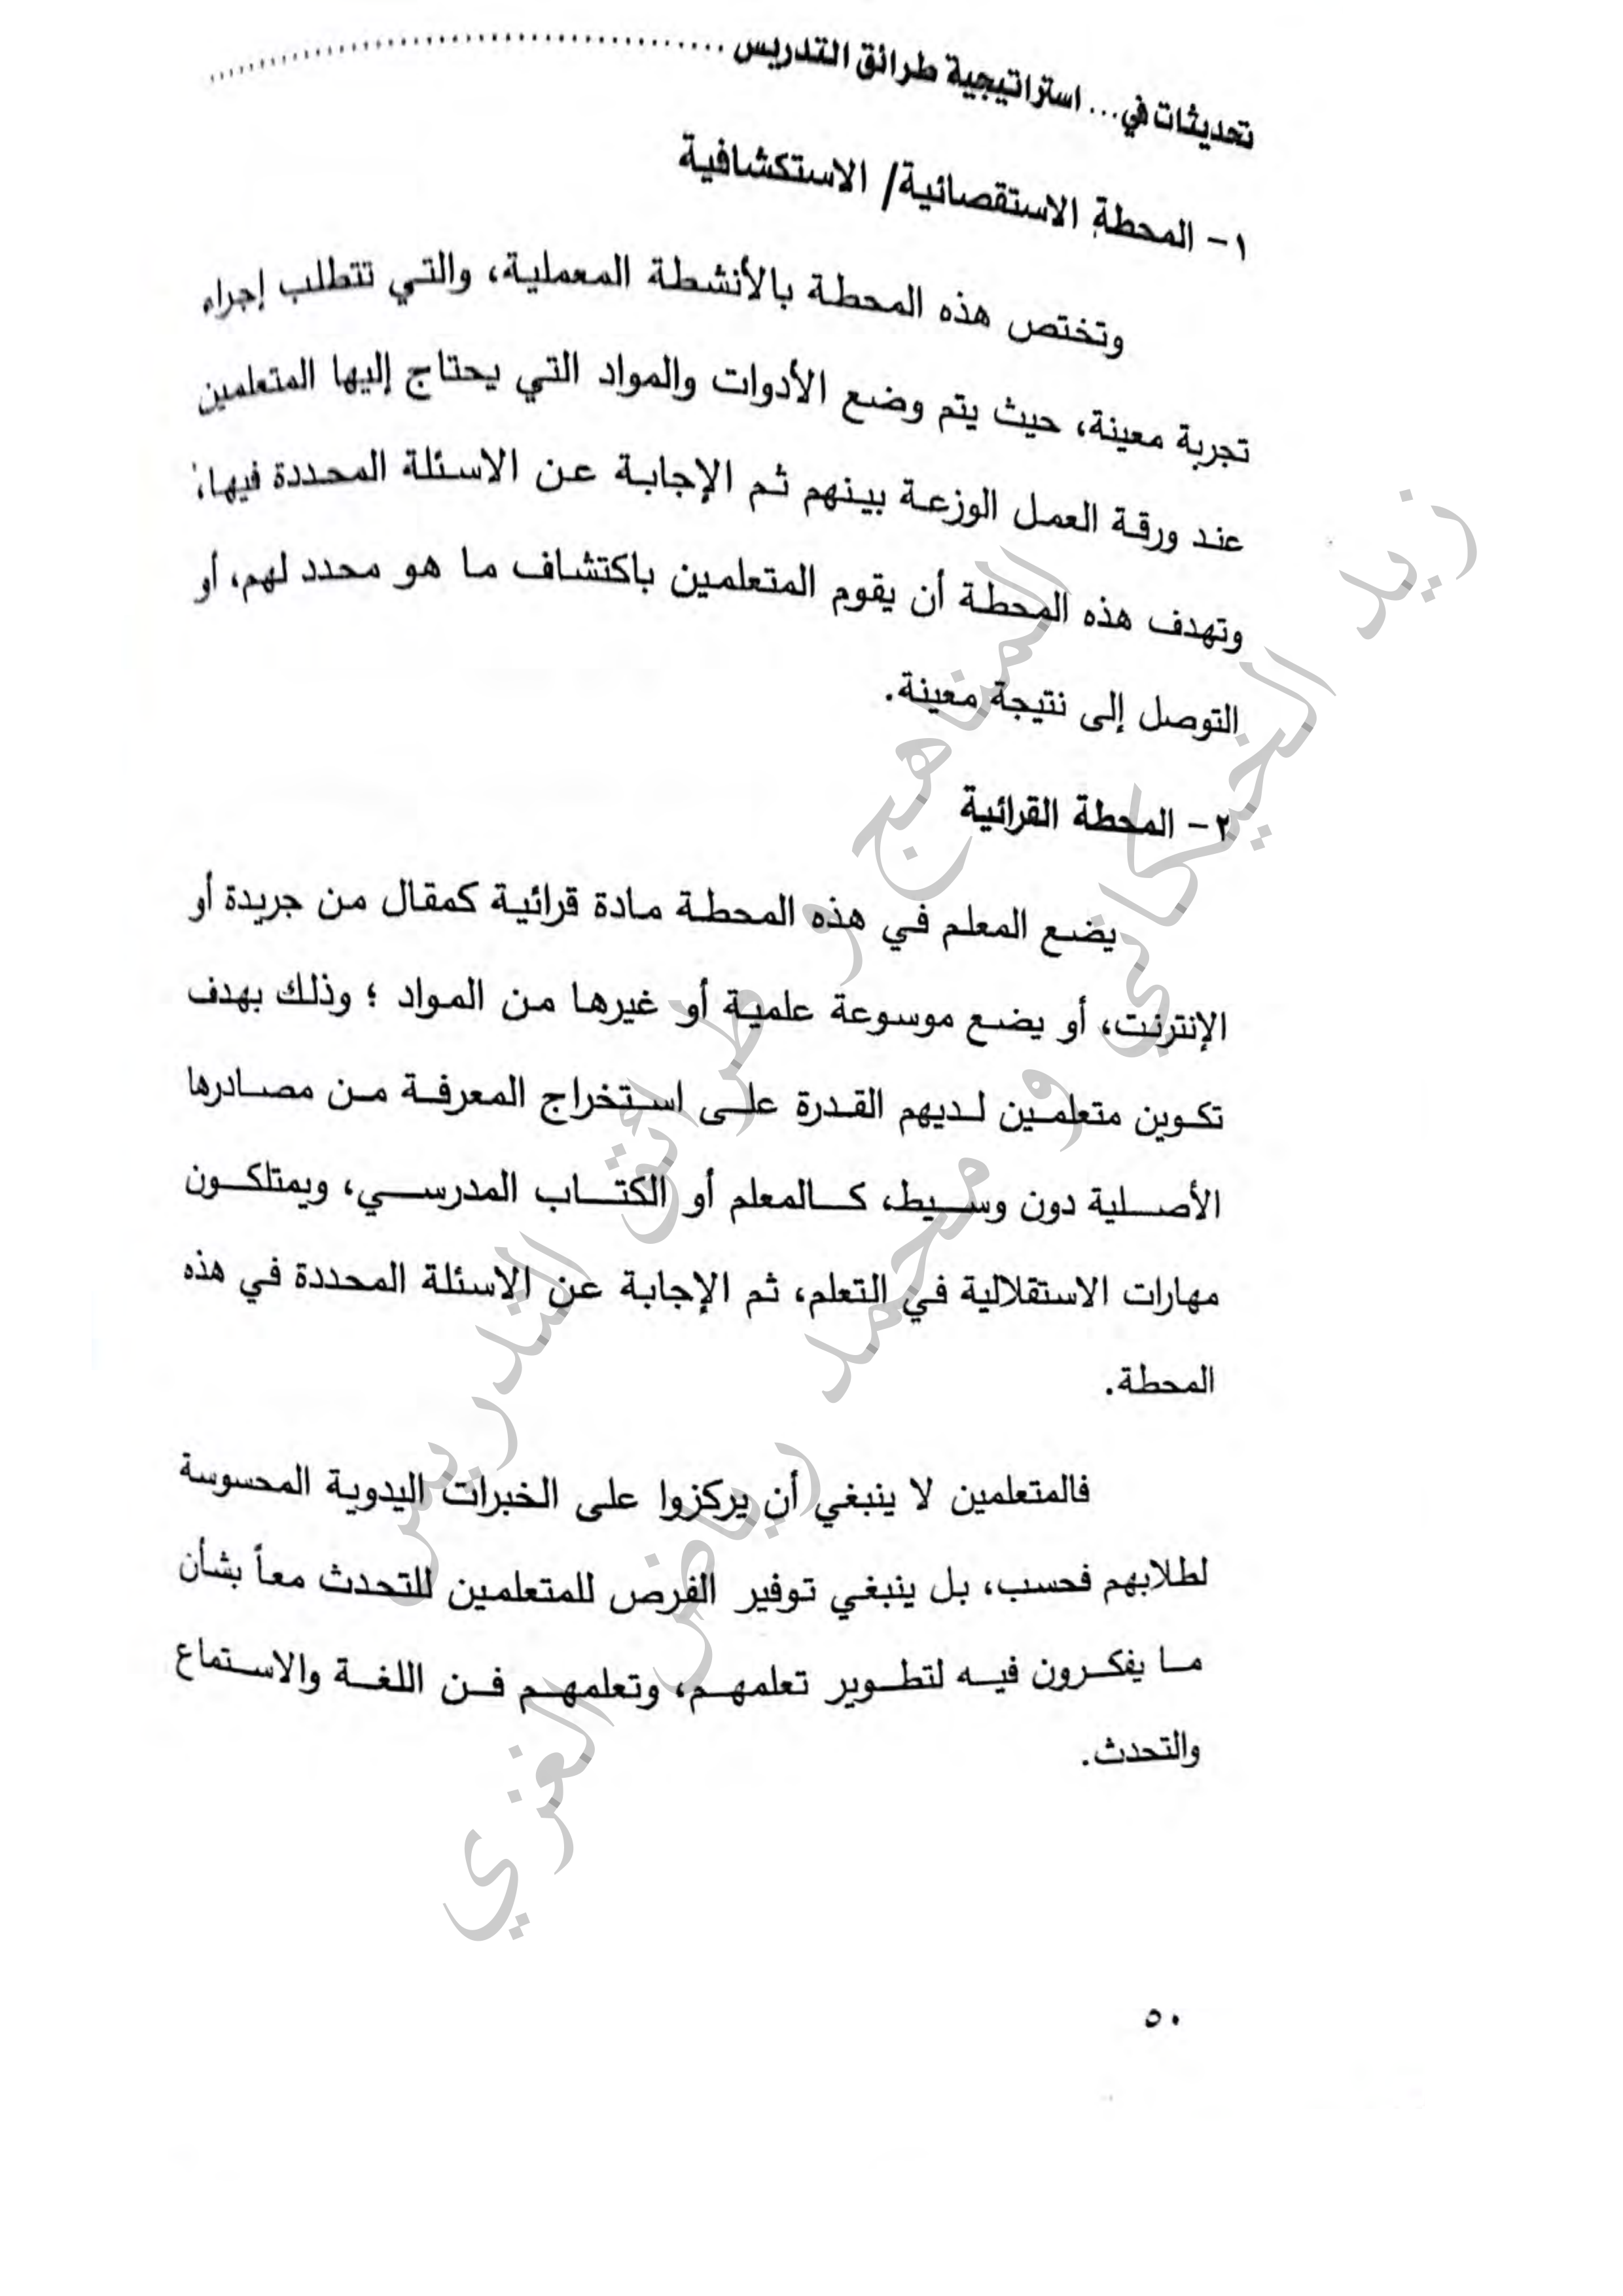 تحديثات في... استراتيجية طرائق التدريس ........................................
١- المحطة الاستقصائية/ الاستكشافية
وتختص هذه المحطة بالأنشطة المعملية، والتي تتطلب إجراء
تجربة معينة، حيث يتم وضع الأدوات والمواد التي يحتاج إليها المتعلمين
عند ورقة العمل الوزعة بينهم ثم الإجابة عن الاسئلة المحددة فيها،
وتهدف هذه المحطة أن يقوم المتعلمين باكتشاف ما هو محدد لهم، أو
التوصل إلى نتيجة معينة.
٢- المحطة القرائية
يضع المعلم في هذه المحطة مادة قرائية كمقال من جريدة أو
الإنترنت، أو يضع موسوعة علمية أو غيرها من المواد ؛ وذلك بهدف
تكوين متعلمين لديهم القدرة على استخراج المعرفة من مصادرها
الأصلية دون وسيط، كالمعلم أو الكتاب المدرسي، ويمتلكون
مهارات الاستقلالية في التعلم، ثم الإجابة عن الاسئلة المحددة في هذه
المحطة.
فالمتعلمين لا ينبغي أن يركزوا على الخبرات اليدوية المحسوسة
لطلابهم فحسب، بل ينبغي توفير الفرص للمتعلمين للتحدث معاً بشأن
ما يفكرون فيه لتطوير تعلمهم، وتعلمهم فن اللغة والاستماع
والتحدث.
٥٠
المناهج و طرائق التدريس
زيد الخيكاني و محمد رياض الغزي